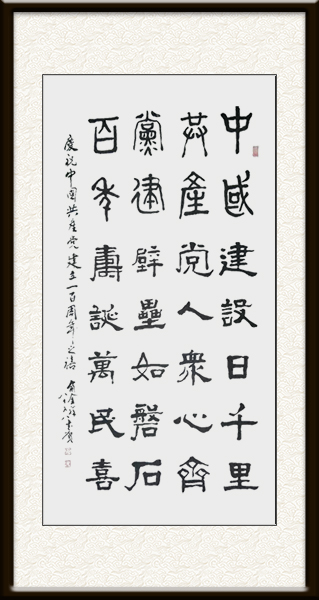 中國建設日千里
共產党人衆心齊
黨建壁壘如磐石
百年壽誕萬民喜
慶祝中国共产党建立一百周年之禧